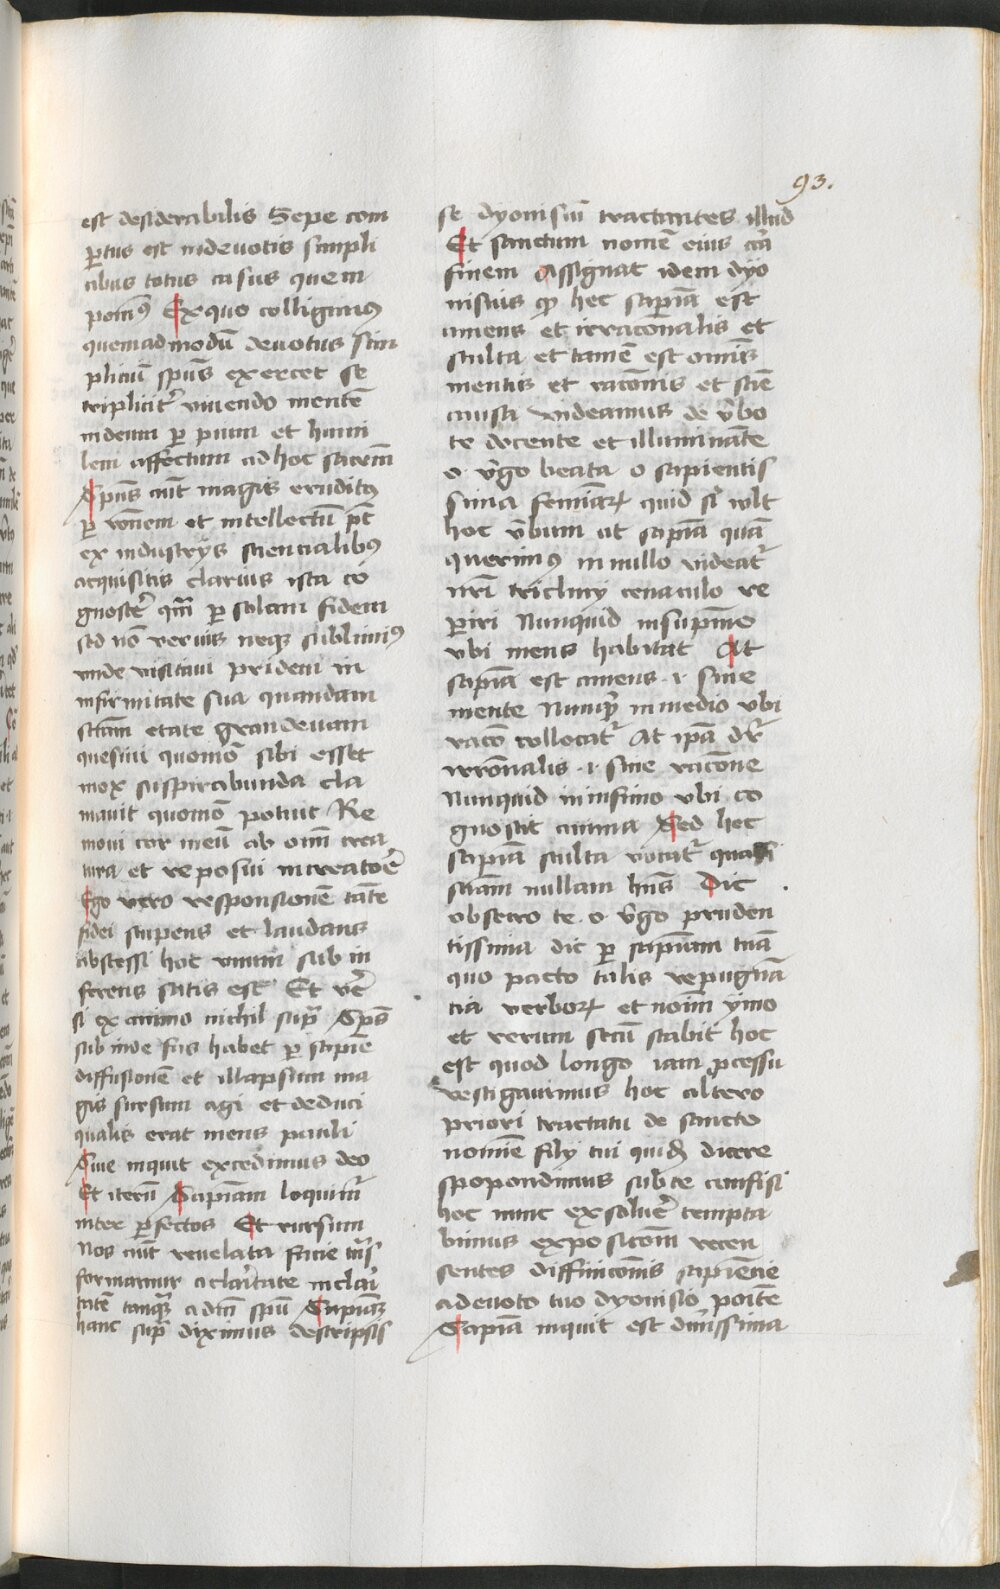 93.
est desiderabilis Sepe com
ꝑtus est indevotis simpli
cibus totus casus quem
ponimꝰ Ex quo colligimus
quemadmodū devotus sim
pliciū spūs exercet se
triplicit᷑ vivendo mentē
in deum ꝑ pium et humi
lem affectum ad hoc sacrm̄
Spūs aūt magis eruditꝰ
ꝑ rōnem et intellectū pt̄
ex industrijs scientialibꝰ
acquisitis clarius ista co
gnosce᷑ qm̄ ꝑ solam fidem
sed nō verius neqꝫ sublimiꝰ
unde visitavi pridem in
infirmitate sua quandam
scām etate grandevam
quesivi quomō sibi esset
mox suspirabunda cla
mavit quomō potuit Re
movi cor meū ab omī crea
tura et reposui in creatorē
Ego vero responsionē tātē
fidei stupens et laudans
abscessi hoc unum sub in
ferens satis est Et vē
si ex animo nichil supͣ Spūs
sub inde fas habet ꝑ sapīe
diffusionē et illapsum ma
gis sursum agi et deduci
qualis erat mens pauli
Sive inquit excedimus deo
Et iterū Sapīam loquim᷑
inter ꝑfectos Et rursum
Nos aūt revelata facie trīs
formamur a claritate in clari
tatē tanqͣꝫ a dnī spū Sapīaꝫ
hanc supͣ diximus descripsis
se dyonisiū tractantes illud
Et sanctum nomē eius cͣa
finem Assignat idem dyo
nisius qꝫ hec sapīa est
amens et irracionalis et
stulta et tamē est omīs
mentis et racōnis et sciē
causa Videamus de v̄bo
te docente et illumināte
o v̄go beata o sapientis
sima femīaꝝ quid sͥ vult
hoc v̄bum ut sapīa quā
querimꝰ in nullo videat᷑
nrī tricliny cenaculo re
ꝑiri Nunquid in supͣmo
ubi mens habitat At
sapīa est amens .i. sine
mente Nunqͥd in medio ubi
racō collocat᷑ At ipā dr̄
irrōnalis .i. sine racōne
Nunquid in infimo ubi co
gnoscit anima Sed hec
sapīa stulta vocat᷑ quasi
sciam nullam hn̄s Dic
obsecro te o v̄go pruden
tissima dic ꝑ sapīam tuā
quo pacto talis repugnā
cia verboꝝ et noīm ymo
et rerum secū stabit hoc
est quod longo iam ꝓcessu
vestigavimus hoc altero
priori tractatu de sancto
nomīe fily tui quidē dicere
spopondimus sub te confisi
hoc nunc exsolve᷑ tempta
bimus exposicōm recen
sentes diffinicōnis sapīencie
a devoto tuo dyonisio poītē
Sapīa inquit est divīssima